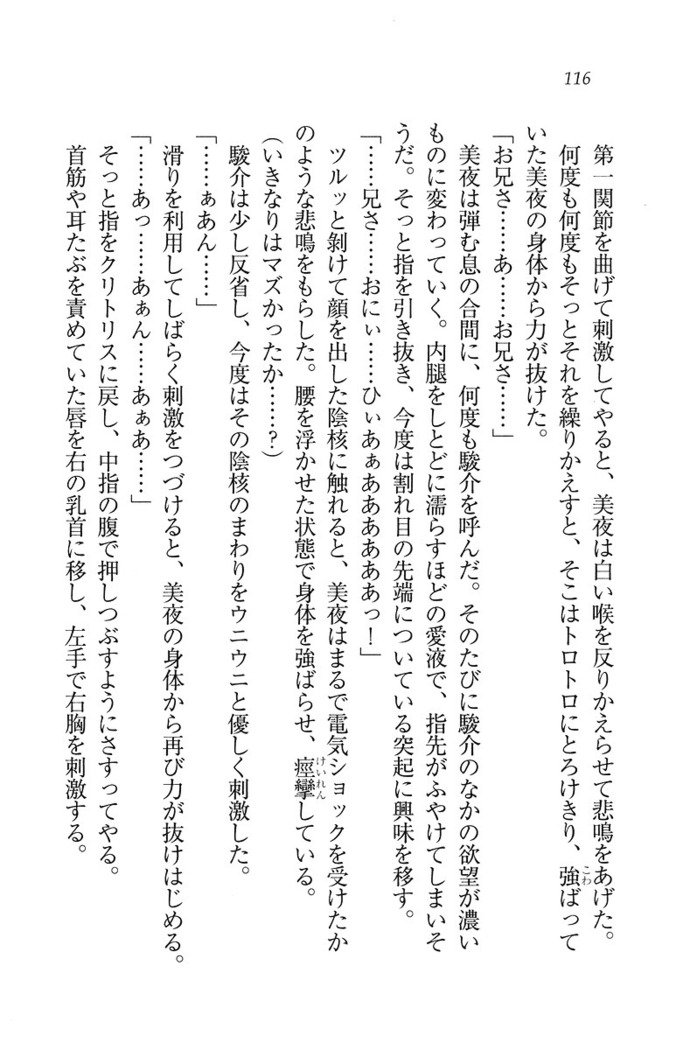 116
第一関節を曲げて刺激してやると、美夜は白い喉を反りかえらせて悲鳴をあげた。
何度も何度もそっとそれを繰りかえすと、そこはトロトロにとろけきり、強ばって
いた美夜の身体から力が抜けた。
「お兄さ……あ……お兄さ……」
美夜は弾む息の合間に、何度も駿介を呼んだ。そのたびに駿介のなかの欲望が濃い
ものに変わっていく。内腿をしとどに濡らすほどの愛液で、指先がふやけてしまいそ
うだ。そっと指を引き抜き、今度は割れ目の先端についている突起に興味を移す。
「……兄さ……おにぃ……ひぃあぁあああああっ！」
ツルッと剝けて顔を出した陰核に触れると、美夜はまるで電気ショックを受けたか
のような悲鳴をもらした。腰を浮かせた状態で身体を強ばらせ、痙攣している。
（いきなりはマズかったか……？）
駿介は少し反省し、今度はその陰核のまわりをウニウニと優しく刺激した。
「……ぁあん……」
滑りを利用してしばらく刺激をつづけると、美夜の身体から再び力が抜けはじめる。
「……あっ……あぁん……あぁあ……」
そっと指をクリトリスに戻し、中指の腹で押しつぶすようにさすってやる。
首筋や耳たぶを責めていた唇を右の乳首に移し、左手で右胸を刺激する。